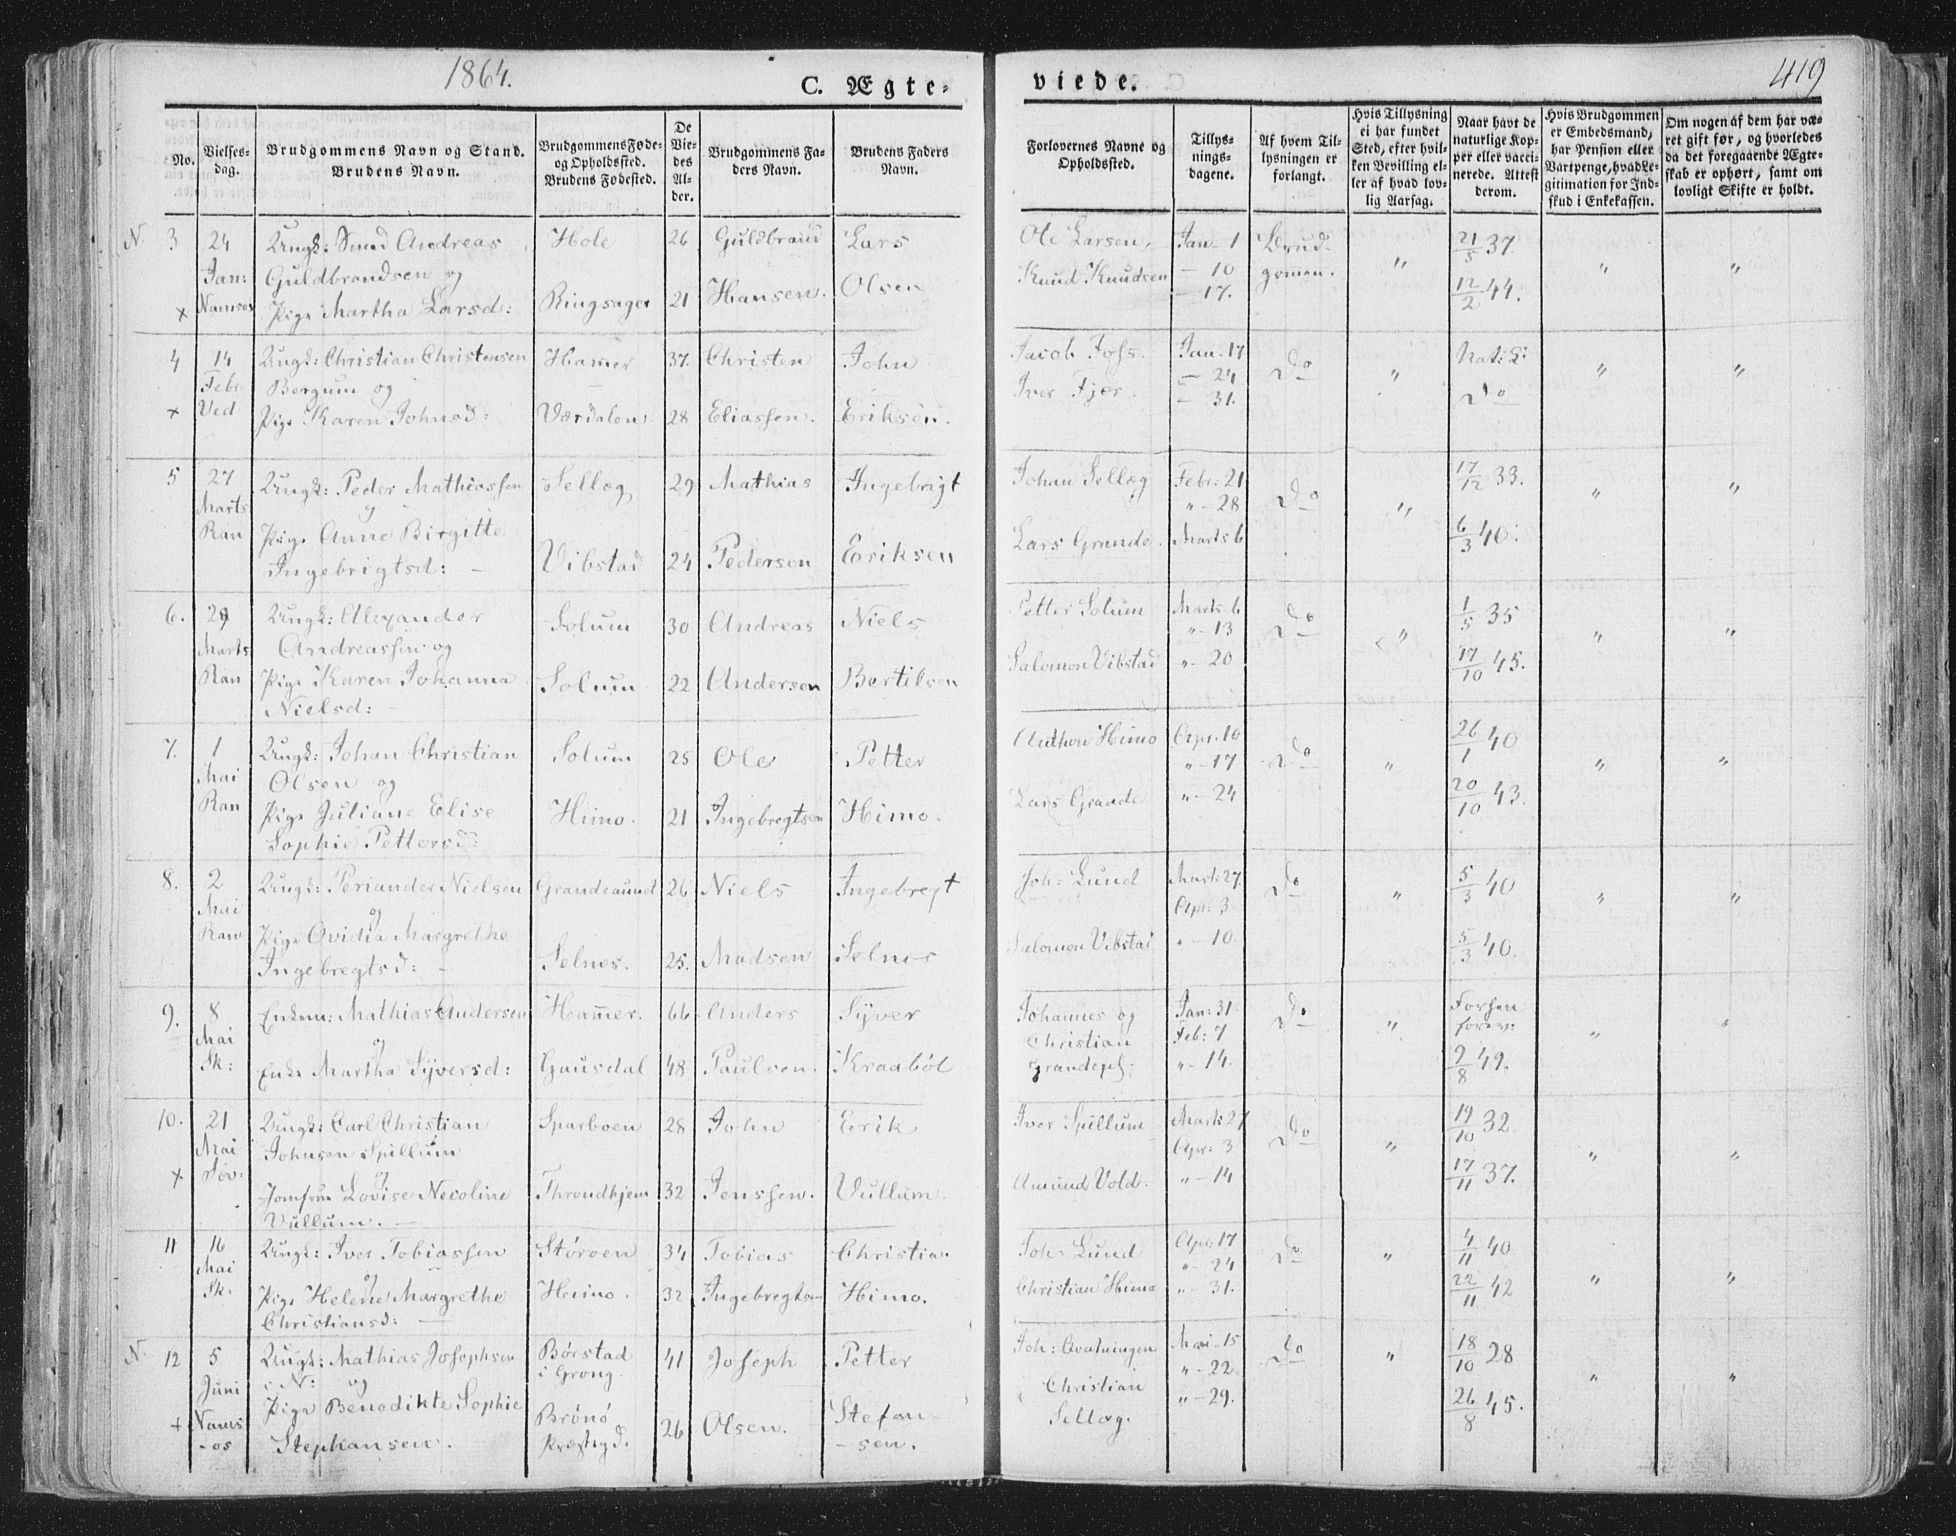 1864.
C. Ægte-
No.
Vielses-
dag.
Brudgommens Navn og Stand.
Brudens Navn.
Brudgommens Føde-
og Opholdssted.
Brudens Fødested.
De
Vie-
des
Al-
der.
Brudgommens Fa-
ders Navn.
Brudens Faders
Navn.
N. 3 24 Ungk: Andreas Hole 26 Guldbrand Lars
Jan: Guldbrandsen og
× Namsos Pige Martha Larsd: Ringsager 21 Hansen. Olsen
4 14 Ungk: Christian Christensen Hamer 37. Christen John
Febr Bergum og
× Ved Pige Karen Johnsd: Værdalen. 28 Eliassen. Eriksen.
5 27 Ungk: Peder Mathiassen Sellæg 29 Mathias Ingebrigt
Marts og
Ran Pige Anne Birgitte
Ingebrigtsd: — Vibstad 24 Pedersen Eriksen
6. 29 Ungk: Alexander Solum 30 Andreas Niels
Marts Andreassen og
Ran Pige Karen Johanna Solum 22 Andersen Bertilsen
Nielsd: —
7. 1 Ungk: Johan Christian Solum 25 Ole Petter
Mai Olsen og
Ran Pige Juliane Elise Himo. 21 Ingebregtsen Himo.
Sophie Pettersd:
8. 2 Ungk: Periander Nielsen Grandeaunet 26 Niels Ingebregt
Mai og
Ran Pige Ovidia Margrethe
Ingebregtsd: — Selnes. 25. Madsen Selnes
9. 8 Enkem: Mathias Andersen Hamer. 66 Anders Syver
Mai og
Sk: Enke Martha Syversd: Gausdal 48 Paulsen. Kraabøl
10. 21 Ungk: Carl Christian Sparboen 28 John Erik
Mai Johnsen Spillum
× og
Jomfru Lovise Nicoline Throndhjem 32 Jenssen. Vullum.
Vullum. —
11 16 Ungk: Iver Tobiassen Støroen 34 Tobias Christian
Mai og
Sk: Pige Helene Margrethe Himo. 32 Ingebregtsen Himo.
Christiansd: —
N. 12 5 Ungk: Mathias Josephsen Børstad 41 Joseph Petter
Juni og i Grong.
+ Nams Pige Benedikte Sophie Brønø 26 Olsen. Stefan-
-os Stephansen. Præstegd. -sen.
viede.
419
Forlovernes Navne og
Opholdssted.
Tillys-
nings-
dagene.
Af hvem Til-
lysningen er
forlangt.
Hvis Tillysning
ei har fundet
Sted, efter hvil-
ken Bevilling el-
ler af hvad lov-
lig Aarsag.
Naar havt de
naturlige Kop-
per eller vacci-
nerede. Attest
derom.
Hvis Brudgommen
er Embedsmand,
har Pension eller
Vartpenge, hvad Le-
gitimation for Ind-
skud i Enkekassen.
Om nogen af dem har væ-
ret gift før, og hvorledes
da det foregaaende Ægte-
skab er ophørt, samt om
lovligt Skifte er holdt.
Ole Larsen, Jan- 1 Brud- 21/5 37.
Knud Knudsen — 10 gomen. " " "
— 17. 12/2 44.
Jacob Foss. Jan- 17 Nat: K:
Iver Fjær. — 24 Do " " "
— 31. Do
Johan Sellæg Febr: 21 17/12 33.
"- 28 Do " " "
Lars Grande. Marts 6 6/3 40.
Petter Solum Marts 6 1/5 35
"- 13 Do " " "
Salomon Vibstad "- 20 17/10 45.
Anthon Himo Apr. 10 26/1 40
"- 17 Do " " "
Lars Grande "- 24 20/10 43.
Joh: Lund Mart: 27. Do 5/3 40
Apr: 3 " " "
Salomon Vibstad "- 10. 5/3 40.
Johannes og Jan: 31 Do
Christian Feb: 7 " " "
"- 14. 9/8 49.
Iver Spillum Marts 27 19/10 32.
Apr: 3 Do " " "
Amund Vold. "- 14 17/11 37.
Joh: Lund Apr: 17 4/11 40
"- 24 Do " " "
Christian Himo "- 31. 22/11 42
Joh: Mai- 15 18/10 28
"- 22. Do " " "
Christian "- 29.
Sellæg. 26/8 45.